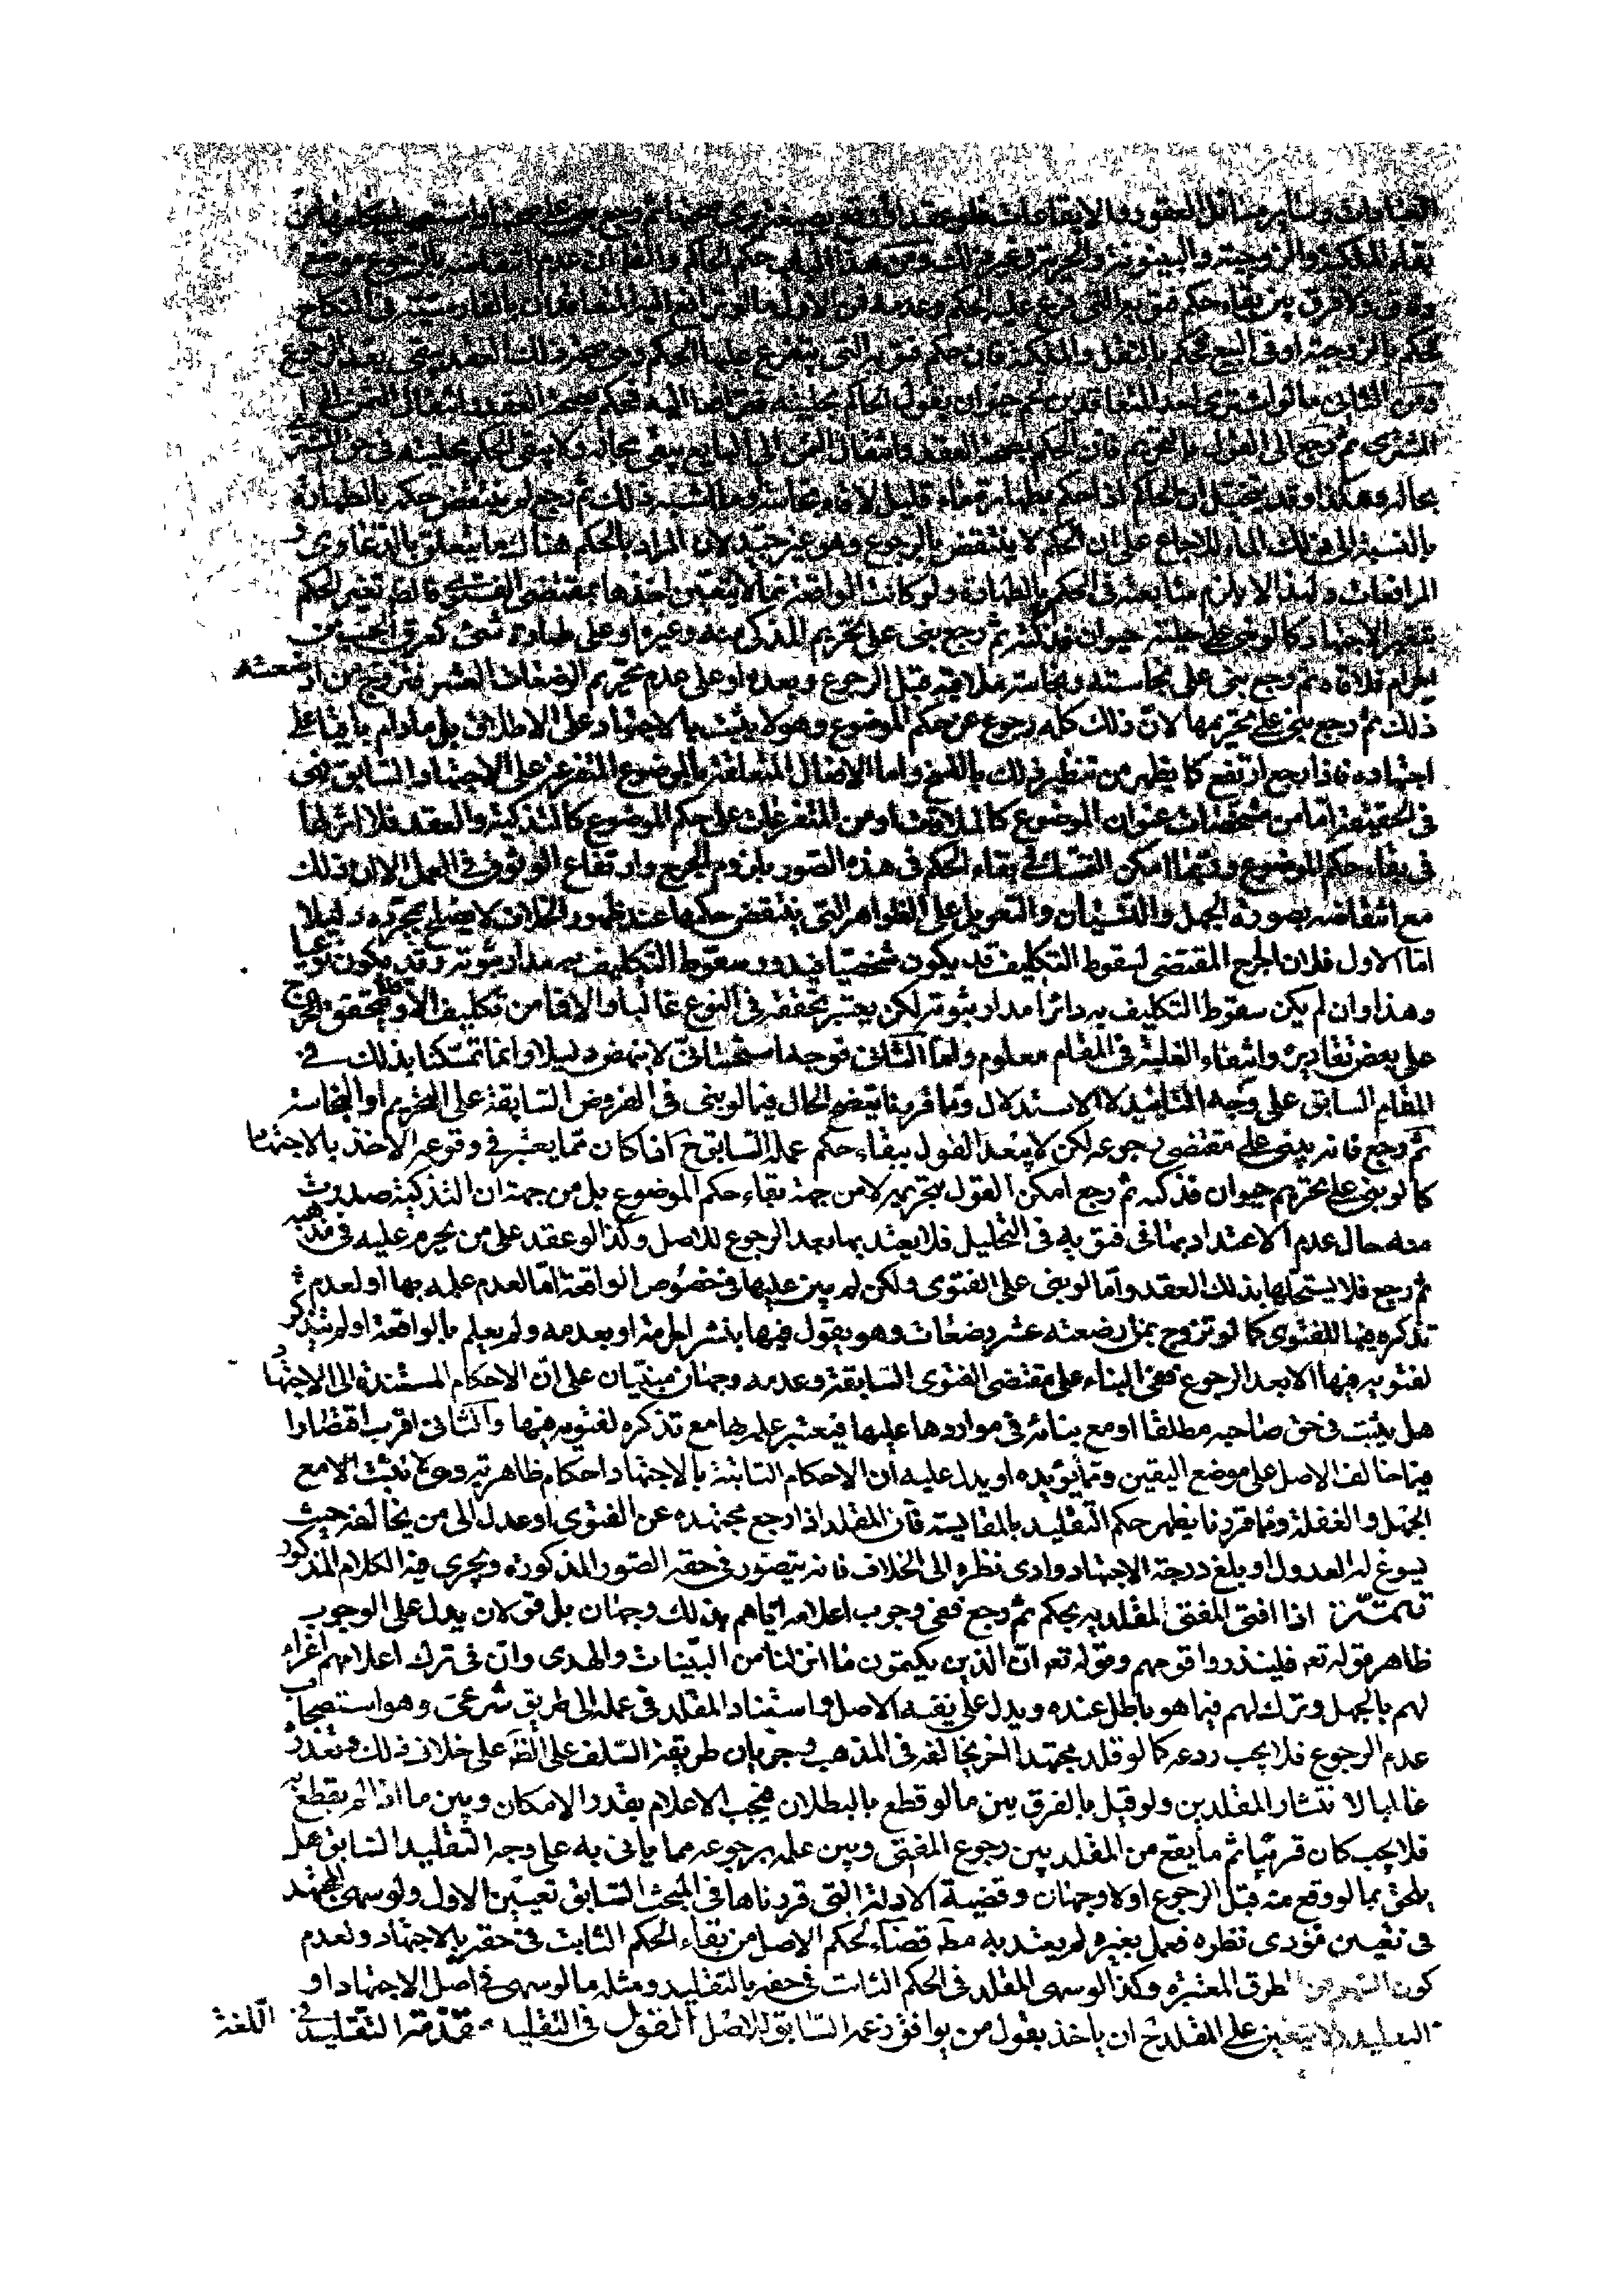 العبادات وسائر مسائل العقود والايقاعات فلو عقد او اوقع بصيغة يرى صحتها ثم رجع بنى على صحتها واستصحب احكامها من
بقاء الملكية والزوجية والبينونة والحرية وغير ذلك ومن هذا الباب حكم الحاكم والظ ان عدم انتقاضه بالرجوع موضع
وفاق ولا فرق بين بقاء حكم فتويه التى فرع عليه الحكم وعدمه فمن الاول ما لو ترافع اليه المتعاقدان بالفارسية فى النكاح
فحكم بالزوجية او فى البيع فحكم بالنقل والملكية فان حكم فتويه التى يتفرع عليها الحكم وهو صحة ذلك العقد يبقى بعد الرجوع
ومن الثانى ما لو اشترى احد المتعاقدين لحم حيوان بقول الحاكم بحليته فترافعا اليه فحكم بصحة العقد وانتقال الثمن الى
المشترى ثم رجع الى القول بالتحريم فان الحكم بصحة العقد وانتقال الثمن الى البايع يبقى بحاله ولا يبقى الحكم بحليته فى حق المشترى
بحاله وهكذا وقد يتخيل ان الحاكم اذا حكم بطهارة ماء قليل لاقاه نجاسة وما اشبه ذلك ثم رجع لم ينتقض حكمه بالطهارة
بالنسبة الى ذلك الماء للاجماع على ان الحكم لا ينتقض بالرجوع وهو غير جيد لان المراد بالحكم هناك ما يتعلق بالدعاوى و
المرافعات ولهذا لا يلزم متابعته فى الحكم بالطهارة ولو كانت الواقعة مما لا يتعين اخذها بمقتضى الفتوى فالظ تغير الحكم
بتغير الاجتهاد كما لو بنى على حلية حيوان فذكيه ثم رجع بنى على تحريم المذكى منه وغيره او على طهارة شئ كعرق الجنب من
الحرام فلاقاه ثم رجع بنى على نجاسته ونجاسة ملاقيه قبل الرجوع وبعده او على عدم تحريم الرضعات العشر فتزوج من ارضعته
ذلك ثم رجع بنى على تحريمها لان ذلك كله رجوع عن حكم الموضوع وهو لا يثبت بالاجتهاد على الاطلاق بل ما دام باقيا على
اجتهاده فاذا رجع ارتفع كما يظهر من تنظير ذلك بالنسخ واما الافعال المتعلقة بالموضوع المتفرعة على الاجتهاد السابق فهى
فى الحقيقة اما من مشخصات عنوان الموضوع كالملاقات او من المتفرعات على حكم الموضوع كالتذكية والعقد فلا اثر لها
فى بقاء حكم الموضوع وربما امكن التمسك فى بقاء الحكم فى هذه الصور بلزوم الحرج وارتفاع الوثوق فى العمل الا ان ذلك
مع انتقاضه بصورة الجهل والنسيان والتعويل على الظواهر التى ينتقض حكمها عند ظهور الخلاف لا يصلح بمجرده دليلا
اما الاول فلان الحرج المقتضى لسقوط التكليف قد يكون شخصيا فيدور سقوط التكليف به مدار ثبوته وقد يكون نوعيا
وهذا وان لم يكن سقوط التكليف به دائرا مدار ثبوته لكن يعتبر تحققه فى النوع غالبا والا فما من تكليف الا وقد يتحقق الحرج
على بعض تقاديره وانتفاء الغلبة فى المقام معلوم واما الثانى فوجه استحسانى لا ينهض دليلا وانما تمسكنا بذلك فى
المقام السابق على وجه التاييد لا الاستدلال ومما قررنا يتضح الحال فيما لو بنى فى الفروض السابقة على التحريم او النجاسة
ثم رجع فانه يبنى على مقتضى رجوعه لكن لا يبعد القول ببقاء حكم عمله السابق ح اذا كان مما يعتبر فى وقوعه الاخذ بالاجتهاد
كما لو بنى على تحريم حيوان فذكيه ثم رجع امكن القول بتحريمه لا من جهة بقاء حكم الموضوع بل من جهة ان التذكية صدرت
منه حال عدم الاعتداد بها فى فتويه فى التحليل فلا يعتد بها بعد الرجوع للاصل وكذا لو عقد على من يحرم عليه فى مذهبه
ثم رجع فلا يستحلها بذلك العقد واما لو بنى على الفتوى ولكن لم يبن عليها فى خصوص الواقعة اما لعدم علمه بها او لعدم
تذكره فيها للفتوى كما لو تزوج بمن رضعته عشر رضعات وهو يقول فيها بنشر الحرمة او بعدمه ولم يعلم بالواقعة او لم يتذكر
لفتويه فيها الا بعد الرجوع ففى البناء على مقتضى الفتوى السابقة وعدمه وجهان مبنيان على ان الاحكام المستندة الى الاجتهاد
هل يثبت فى حق صاحبه مطلقا او مع بنائه فى مواردها عليها فيعتبر علمه بها مع تذكره لفتويه فيها والثانى اقرب اقتصارا
فيما خالف الاصل على موضع اليقين ومما يؤيده او يدل عليه ان الاحكام الثابتة بالاجتهاد احكام ظاهرية وهى لا تثبت الا مع
الجهل والغفلة ومما قررنا يظهر حكم التقليد بالمقايسة فان المقلد اذا رجع مجتهده عن الفتوى او عدل الى من يخالفه حيث
يسوغ له العدول او بلغ درجة الاجتهاد وادى نظره الى الخلاف فانه يتصور فى حقه الصور المذكورة ويجرى فيه الكلام المذكور
تتمة اذا افتى المفتى لمقلديه بحكم ثم رجع ففى وجوب اعلامه اياهم بذلك وجهان بل قولان يدل على الوجوب
ظاهر قوله تعه فلينذروا قومهم وقوله تعه ان الذين يكتمون ما انزلنا من البينات والهدى وان فى ترك اعلامهم اغراء
لهم بالجهل وترك لهم فيما هو باطل عنده ويدل على نفيه الاصل واستناد المقلد فى عمله الى طريق شرعى وهو استصحاب
عدم الرجوع فلا يجب ردعه كما لو قلد مجتهدا اخر يخالفه فى المذهب وجريان طريقة السلف على الظ على خلاف ذلك وتعذره
غالبا لانتشار المقلدين ولو قيل بالفرق بين ما لو قطع بالبطلان فيجب الاعلام بقدر الامكان وبين ما اذا لم يقطع به
فلا يجب كان قريبا ثم ما يقع من المقلد بين رجوع المفتى وبين علمه برجوعه مما ياتى به على وجه التقليد السابق هل
يلحق بما لو وقع منه قبل الرجوع اولا وجهان وقضية الادلة التى قررناها فى المبحث السابق تعيين الاول ولو سهى المجتهد
فى تعيين مؤدى نظره فعمل بغيره لم يعتد به مط قضاء لحكم الاصل من بقاء الحكم الثابت فى حقه بالاجتهاد ولعدم
كون السهو من الطرق المعتبرة وكذا لو سهى المقلد فى الحكم الثابت فى حقه بالتقليد ومثله ما لو سهى فى اصل الاجتهاد او
التقليد ولا يتعين على المقلد ح ان ياخذ بقول من يوافق زعمه السابق للاصل القول فى التقليد مقدمة التقليد فى اللغة